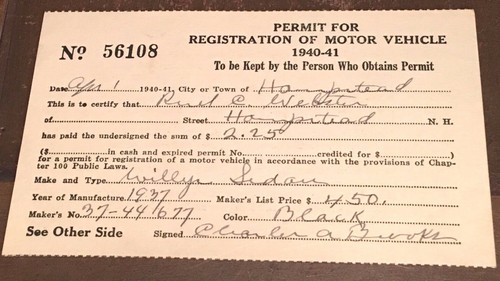 PERMIT FOR
REGISTRATION OF MOTOR VEHICLE
1940-41
No 56108
To be Kept by the Person Who Obtains Permit
Date Apr 1 1940-41, City or Town of Hampstead
This is to certify that C. Webster
of Street, Hampstead N. H.
has paid the undersigned the sum of $ 2.25
($ in cash and expired permit No. credited for $ )
for a permit for registration of a motor vehicle in accordance with the provisions of Chap-
ter 100 Public Laws.
Make and Type Willys Sedan
Year of Manufacture 1937 Maker's List Price $ 450.
Maker's No. 37-441677 Color Black
See Other Side Signed Charles A Brooks